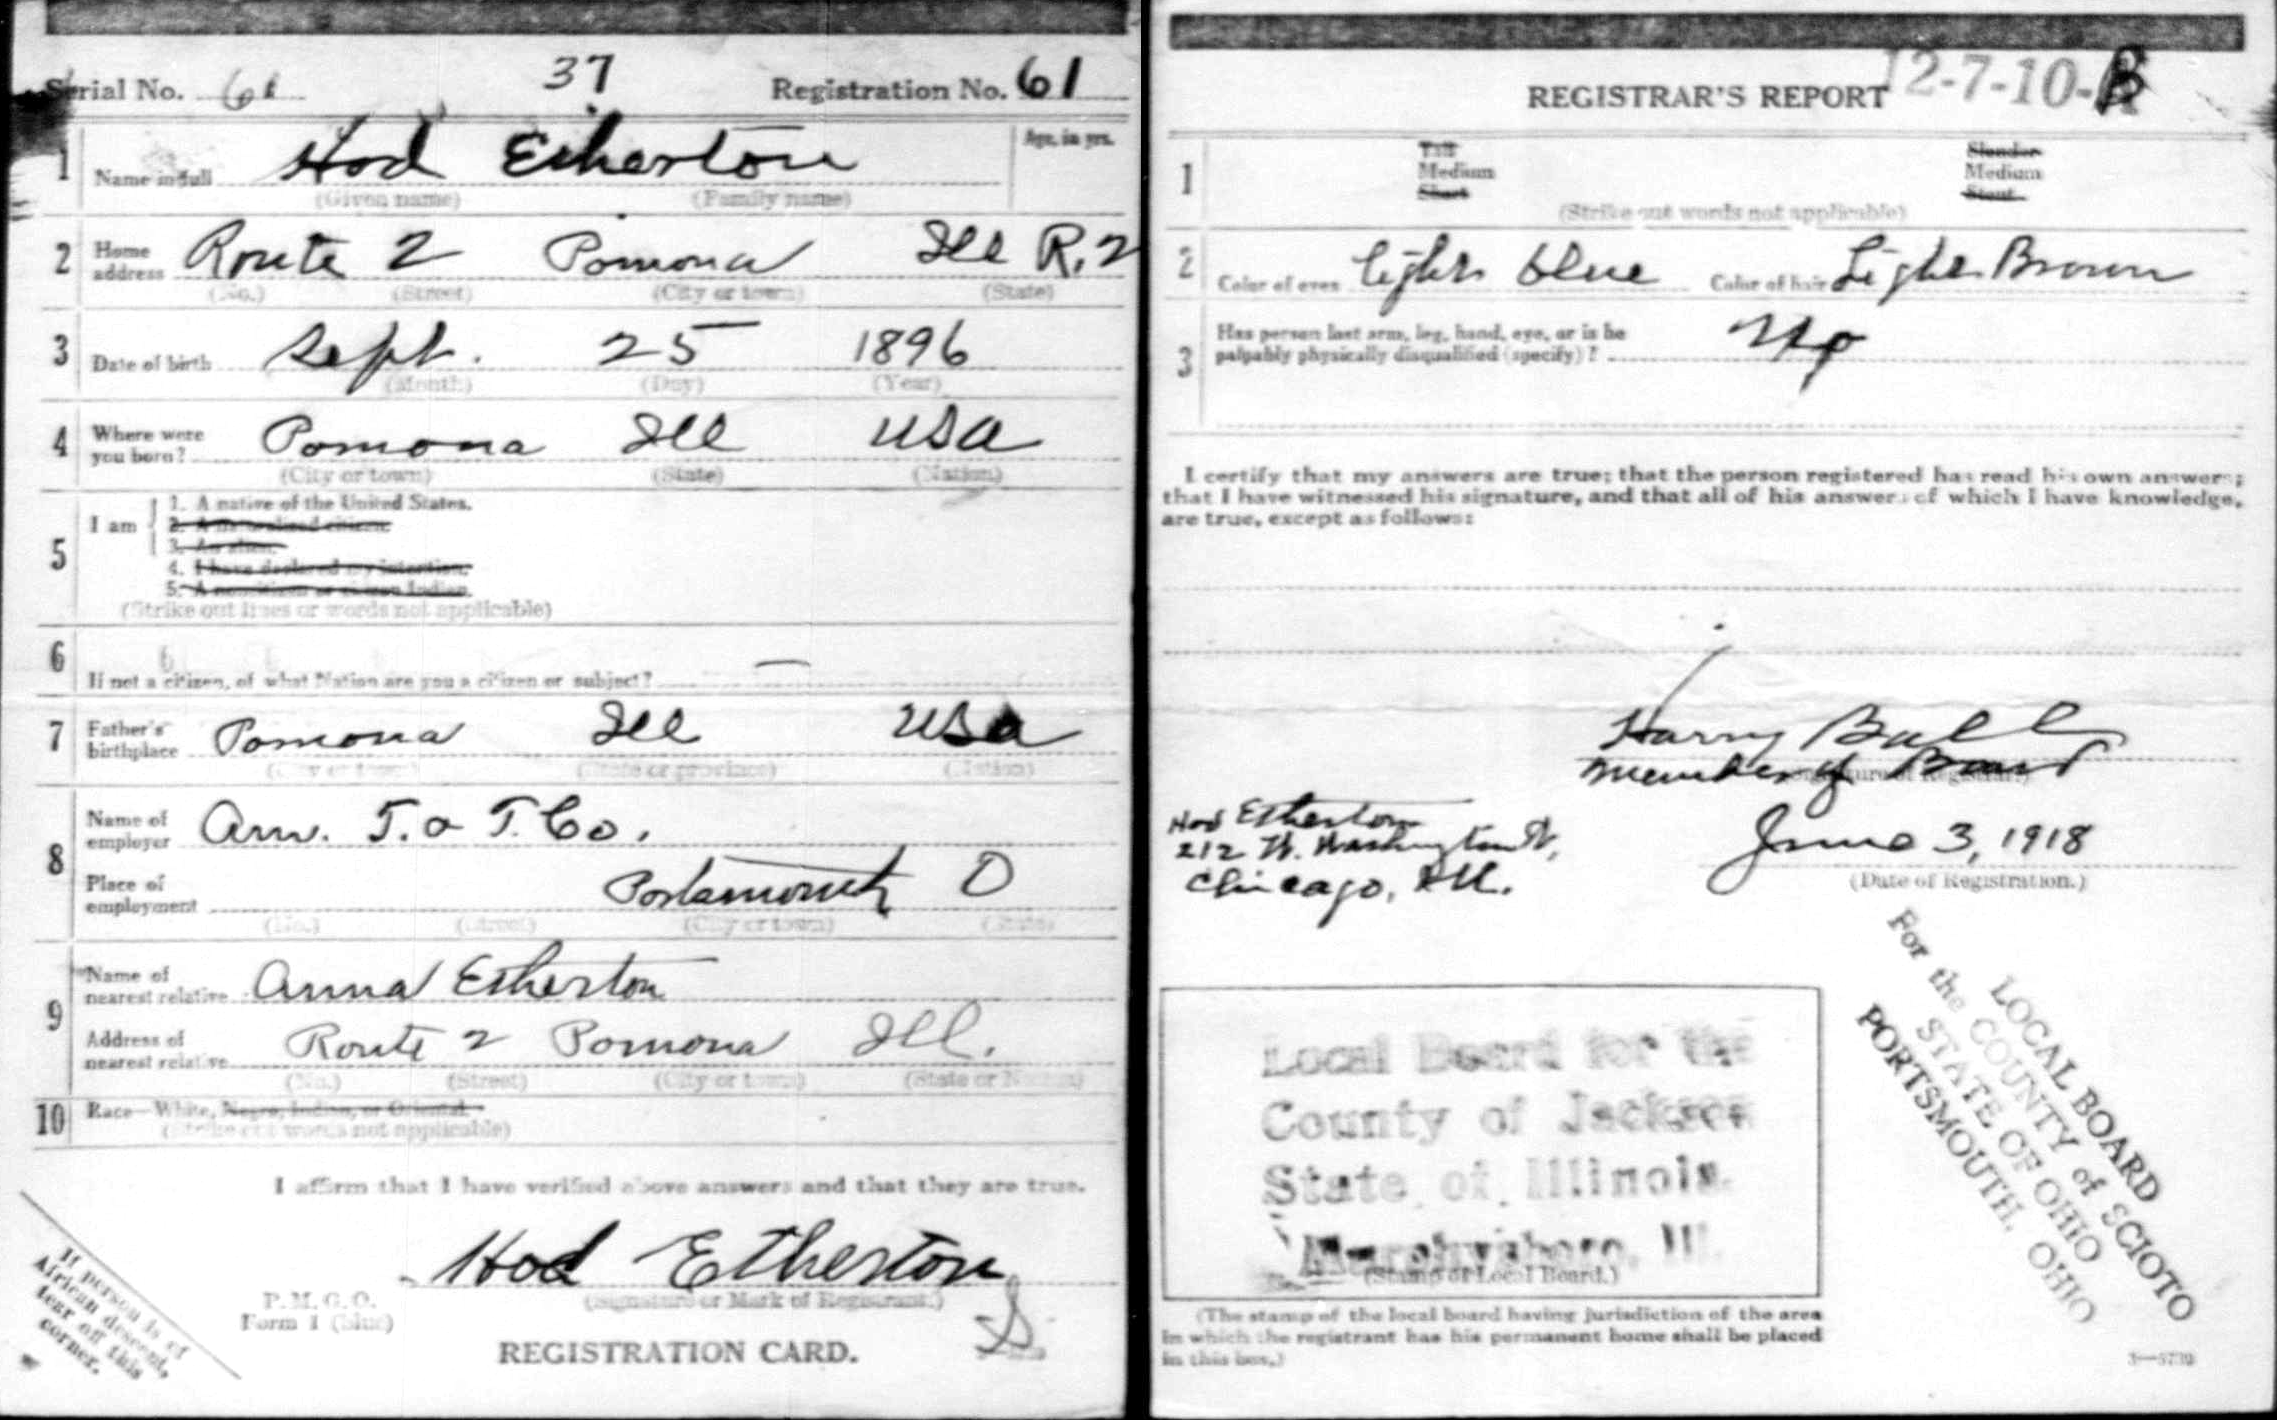 37
Serial No. 61 Registration No. 61
Age, in yrs.
1 Name in full Hod Etherton
(Given name) (Family name)
2 Home address Route 2 Pomona Ill R.2
(No.) (Street) (City or town) (State)
3 Date of birth Sept. 25 1896
(Month) (Day) (Year)
4 Where were you born? Pomona Ill USA
(City or town) (State) (Nation)
5 I am
1. A native of the United States.
2. A naturalized citizen.
3. An alien.
4. I have declared my intention.
5. A noncitizen or citizen Indian.
(Strike out lines or words not applicable)
6 If not a citizen, of what Nation are you a citizen or subject? —
7 Father's birthplace Pomona Ill USA
(City or town) (State or province) (Nation)
8 Name of employer Am. T. & T. Co.
Place of employment Portsmouth O
(No.) (Street) (City or town) (State)
9 Name of nearest relative Anna Etherton
Address of nearest relative Route 2 Pomona Ill.
(No.) (Street) (City or town) (State or Nation)
10 Race—White, Negro, Indian, or Oriental.
(Strike out words not applicable)
I affirm that I have verified above answers and that they are true.
Hod Etherton
(Signature or Mark of Registrant.)
P. M. G. O.
Form 1 (blue)
REGISTRATION CARD.
If person is of
African descent,
tear off this
corner.
REGISTRAR'S REPORT 12-7-10-
1 Tall Slender
Medium Medium
Short Stout
(Strike out words not applicable)
2 Color of eyes light blue Color of hair Light Brown
3 Has person lost arm, leg, hand, eye, or is he
palpably physically disqualified (specify)? No
I certify that my answers are true; that the person registered has read his own answers;
that I have witnessed his signature, and that all of his answers of which I have knowledge,
are true, except as follows:
Harry Ball
Member of Board
(Signature of Registrar.)
Hod Etherton
212 W. Washington St,
Chicago, Ill.
June 3, 1918
(Date of Registration.)
Local Board for the
County of Jackson
State of Illinois.
Murphysboro, Ill.
(Stamp of Local Board.)
LOCAL BOARD
For the COUNTY of SCIOTO
STATE OF OHIO
PORTSMOUTH, OHIO
(The stamp of the local board having jurisdiction of the area
in which the registrant has his permanent home shall be placed
in this box.)